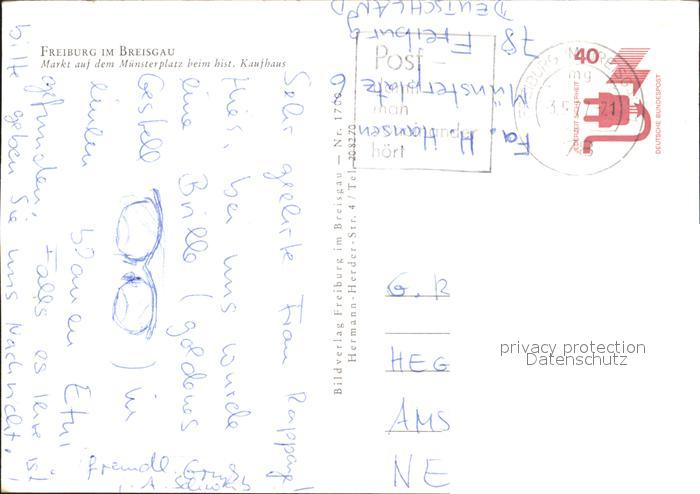 FREIBURG IM BREISGAU
Markt auf dem Münsterplatz beim hist. Kaufhaus
Sehr geehrte Frau Rappang!
Hier, bei uns wurde
eine Brille (goldenes
Gestell ) in
einem blauen Etui
gefunden. Falls es Ihre ist
bitte geben Sie uns Nachricht.
freundl. Gruß
Bildverlag Freiburg im Breisgau — Nr. 1706
Hermann-Herder-Str. 4 / Tel. 208270
Fa. H. Hansen
Münsterplatz 6
78 Freiburg
DEUTSCHLAND
Post
man
hört
40
JEDERZEIT SICHERHEIT
DEUTSCHE BUNDESPOST
FREIBURG IM BRE
21
G. R
HEG
AMS
NE
privacy protection
Datenschutz